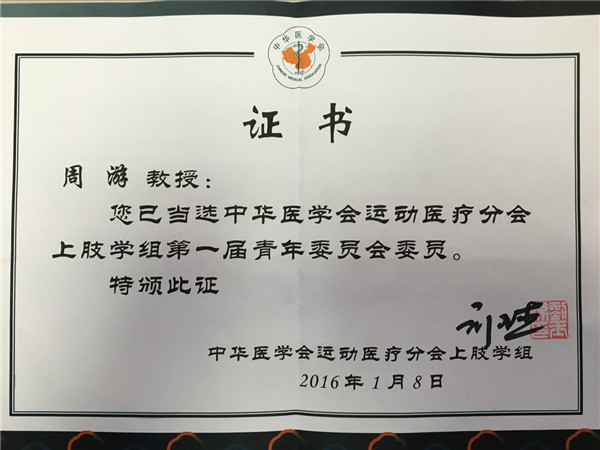 中华医学会
CHINESE MEDICAL ASSOCIATION
证书
周 游 教授：
您已当选中华医学会运动医疗分会
上肢学组第一届青年委员会委员。
特颁此证
中华医学会运动医疗分会上肢学组
2016年1月8日